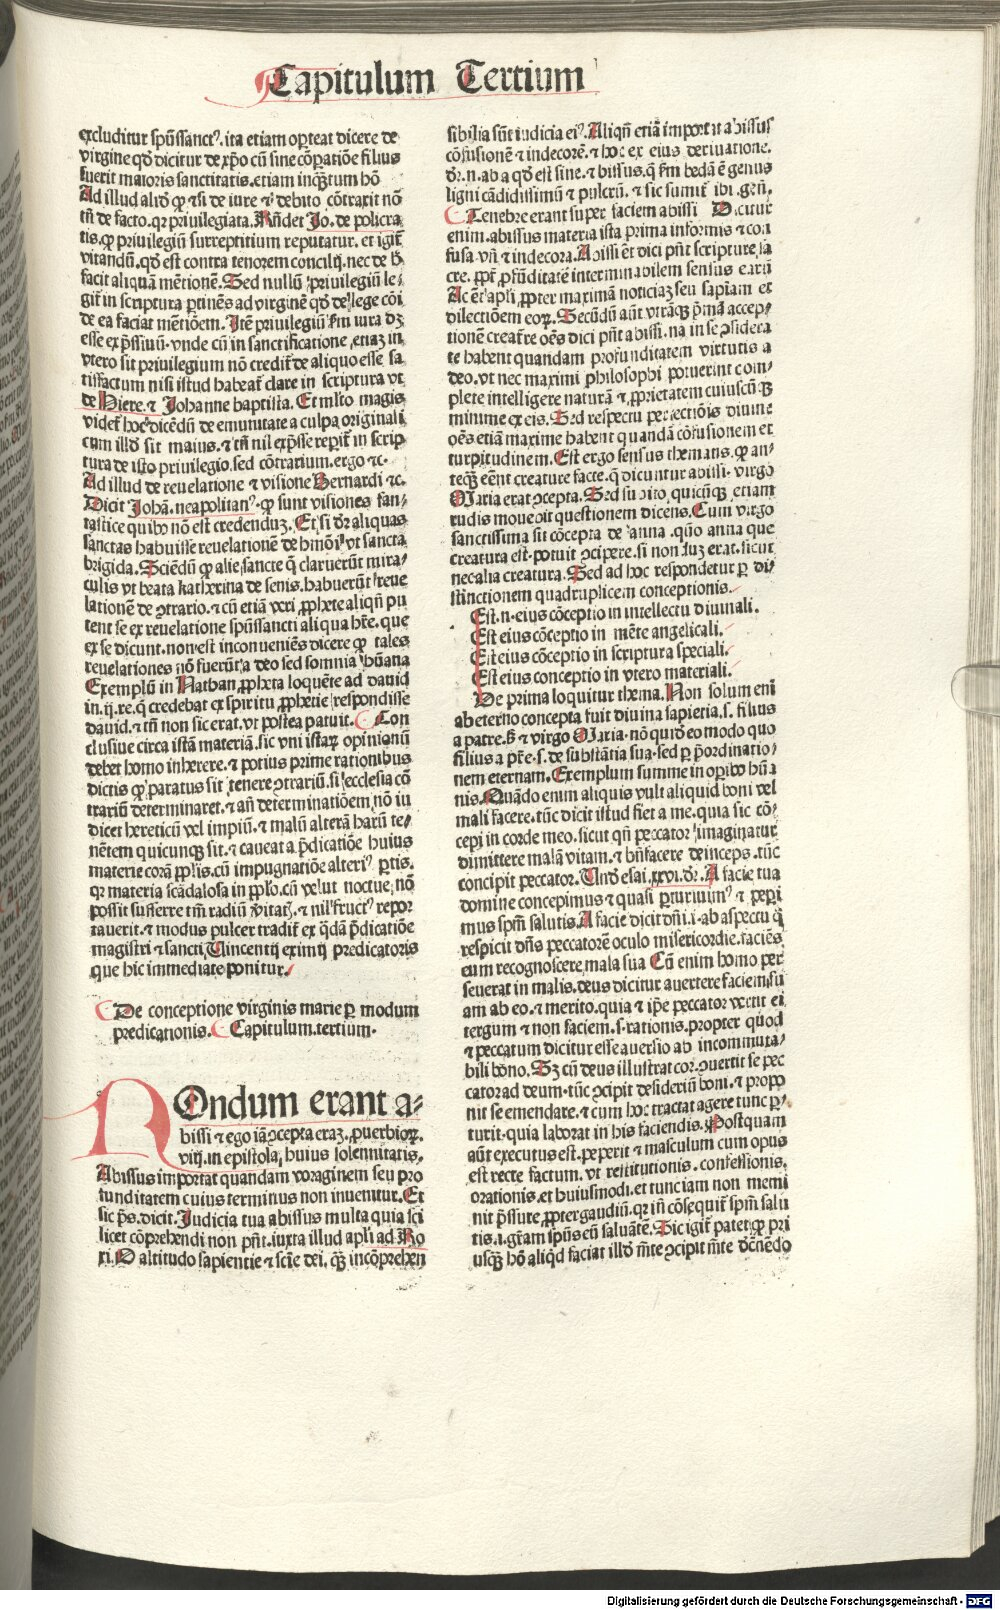 Capitulum Tertium
excluditur spũssanctꝰ. ita etiam oꝑteat dicere de
virgine qđ dicitur de xp̃o cũ sine cõꝑatiõe filius
fuerit maioris sanctitatis. etiam inqꝫtum hõ
Ad illud aliđ ꝙ ⁊ si de iure ⁊ debito cõtraxit nõ
tñ de facto. qꝛ priuilegiata. Rñdet Jo. de policra
tis. ꝙ priuilegiũ surreptitium reputatur. et igit̃
vitandũ. qđ est contra tenorem concilij. nec de b̾
facit aliquã mẽtionẽ. Sed nullũ priuilegiũ le⸗
git̃ in scriptura ꝑtinẽs ad virginẽ qđ de lege cõi
de ea faciat mẽtiõem. Itẽ priuilegiũ ẜm iura dꝫ
esse exp̃ssiuũ. vnde cũ in sanctificatione, etiaꝫ in
vtero sit priuilegium nõ credit̃ de aliquo esse sa
tisfactum nisi istud habeat̃ clare in scriptura vt
de Hiere. ⁊ Johanne baptista. Et mlto magis
videt̃ hoc dicẽdũ de emunitate a culpa originali
cum illđ sit maius. ⁊ tñ nil exp̃sse reperit̃ in scrip
tura de isto priuilegio. sed cõtrarium. ergo ⁊c.
Ad illud de reuelatione ⁊ visione Bernardi ⁊c.
Dicit Johã. neapolitanꝰ. ꝙ sunt visiones fan⸗
tastice quibꝰ nõ est credenduꝫ. Et si dr̃ aliquas
sanctas habuisse reuelationẽ de hmõi vt sancta
brigida. Sciendũ ꝙ alie sancte q̃ claruerũt mira⸗
culis vt beata katherina de senis. habuerũt reue
lationẽ de ꝯtrario. ⁊ cũ etiã veri ꝓphete aliqñ pu
tent se ex reuelatione spũssancti aliqua hr̃e. que
ex se dicunt. non est inconueniẽs dicere ꝙ tales
reuelationes nõ fuerũt a deo sed somnia hũana
Exemplũ in Nathan ꝓpheta loquẽte ad dauid
in. ij. re. q̃ credebat ex spiritu ꝓphetie respondisse
dauid. ⁊ tñ non sic erat. vt postea patuit. Con
clusiue circa istã materiã. sic vni istaꝝ opinionũ
debet homo inherere. ⁊ potius prime rationibus
dictis ꝙ paratus sit tenere ꝯtrariũ. si ecclesia cõ
trariũ determinaret. ⁊ añ determinatiõem nõ iu
dicet hereticũ vel impiũ. ⁊ malũ alterã harũ te⸗
nẽtem quicunqꝫ sit. ⁊ caueat a p̃dicatiõe huius
materie corã pꝓlis. cũ impugnatiõe alteriꝰ ꝑtis.
qꝛ materia scãdalosa in pꝓlo. cũ velut noctue nõ
possit sufferre tm̃ radiũ v̾itatꝭ. ⁊ nil fructꝰ repor
tauerit. ⁊ modus pulcer tradit̃ ex q̃dã p̃dicatiõe
magistri ⁊ sancti Vincentij eximij predicatoris
que hic immediate ponitur.
De conceptione virginis marie ꝑ modum
predicationis. Capitulum. tertium.
NOndum erant a⸗
bissi ⁊ ego iã ꝯcepta eraꝫ. ꝓuerbioꝝ.
viij. in epistola, huius solennitatis.
Abissus importat quandam voraginem seu pro
funditatem cuius terminus non inuenitur. Et
sic p̃s. dicit. Judicia tua abissus multa quia sci
licet cõprehendi non pñt. iuxta illud apli ad Ro
xi. O altitudo sapientie ⁊ scie dei. qꝫ incõprehen
sibilia sũt iudicia eiꝰ. Aliqñ etiã importat abissus
cõfusionẽ ⁊ indecorẽ. ⁊ hoc ex eius deriuatione.
dr̃. n. ab a qđ est sine. ⁊ bissus. q̃ ẜm bedã ẽ genus
ligni cãdidissimũ ⁊ pulcrũ. ⁊ sic sumit̃ ibi. geñ.
Tenebre erant super faciem abissi Dicitur
enim. abissus materia ista prima informis ⁊ con
fusa. vñ ⁊ indecora. Abissi ẽt dici pñt scripture sa
cre. ꝓpt̾ ꝓfũditatẽ interminabilem sensus earũ
Ac ẽt apli ꝓpter maximã noticiaꝫ seu sapiam et
dilectiõem eoꝝ. Secũdũ aũt vtrãqꝫ p̃mã accep⸗
tionẽ creat̃re oẽs dici pñt abissi. na in se ꝯsidera
te habent quandam profunditatem virtutis a
deo. vt nec maximi philosophi potuerint com⸗
plete intelligere naturã ⁊ ꝓprietatem cuiuscũqꝫ
minime ex eis. Sed respectu perfectiõis diuine
oẽs etiã maxime habent quandã cõfusionem et
turpitudinem. Est ergo sensus thematis. ꝙ an⸗
teqꝫ eẽnt creature facte. q̃ dicuntur abissi. virgo
Maria erat ꝯcepta. Sed subito quicũqꝫ etiam
rudis mouebit questionem dicens. Cum virgo
sanctissima sit cõcepta de anna. quo anna que
creatura est. potuit ꝯcipere. si non duꝫ erat. sicut
nec alia creatura. Sed ad hoc respondetur ꝑ di⸗
stinctionem quadruplicem conceptionis.
Est. n. eius cõceptio in intellectu diuinali.
Est eius cõceptio in mẽte angelicali.
Est eius cõceptio in scriptura speciali.
Est eius conceptio in vtero materiali.
De prima loquitur thema. Non solum eni
ab eterno concepta fuit diuina sapietia. s. filius
a patre. ß ⁊ virgo Maria. nõ quid eo modo quo
filius a pr̃e. s. de substãtia sua. sed ꝑ p̃ordinatio⸗
nem eternam. Exemplum summe in oꝑibꝰ hũa
nis. Quãdo enim aliquis vult aliquid boni vel
mali facere. tũc dicit istud fiet a me. quia sic cõ⸗
cepi in corde meo. sicut qñ peccator imaginatur
dimittere malã vitam. ⁊ bñfacere deinceps. tũc
concipit peccator. Unđ esai. xxvi. dr̃. A facie tua
domine concepimus ⁊ quasi ꝑturiuimꝰ ⁊ peperi
mus spm̃ salutis. A facie dicit dñi. i. ab aspectu q̃
respicit dñs peccatorẽ oculo misericordie. faciẽs
eum recognoscere mala sua Cũ enim homo per
seuerat in malis. deus dicitur auertere faciem su
am ab eo. ⁊ merito. quia ⁊ ip̃e peccator vertit ei
tergum ⁊ non faciem. s. rationis. propter quod
⁊ peccatum dicitur esse auersio ab incommuta⸗
bili bono. Sꝫ cũ deus illustrat cor. ꝯuertit se pec
cator ad deum. tũc ꝯcipit desideriũ boni. ⁊ propo
nit se emendare. ⁊ cum hoc tractat agere tunc ꝑ⸗
turit. quia laborat in his faciendis. Postquam
aũt executus est. peperit ⁊ masculum cum opus
est recte factum. vt restitutionis. confessionis.
orationis. et huiusmodi. et tunc iam non memi
nit p̃ssure ꝓpter gaudiũ. qꝛ iñ cõsequit̃ spm̃ salu
tis. i. gr̃am spũs eũ saluãte. Sic igit̃ patet ꝙ pri
usqꝫ hõ aliqđ faciat illđ mẽte ꝯcipit mẽte dẽnẽdo
Digitalisierung gefördert durch die Deutsche Forschungsgemeinschaft - DFG